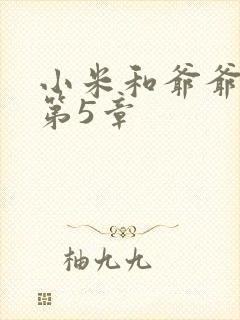 小米和爷爷
第5章
柚九九